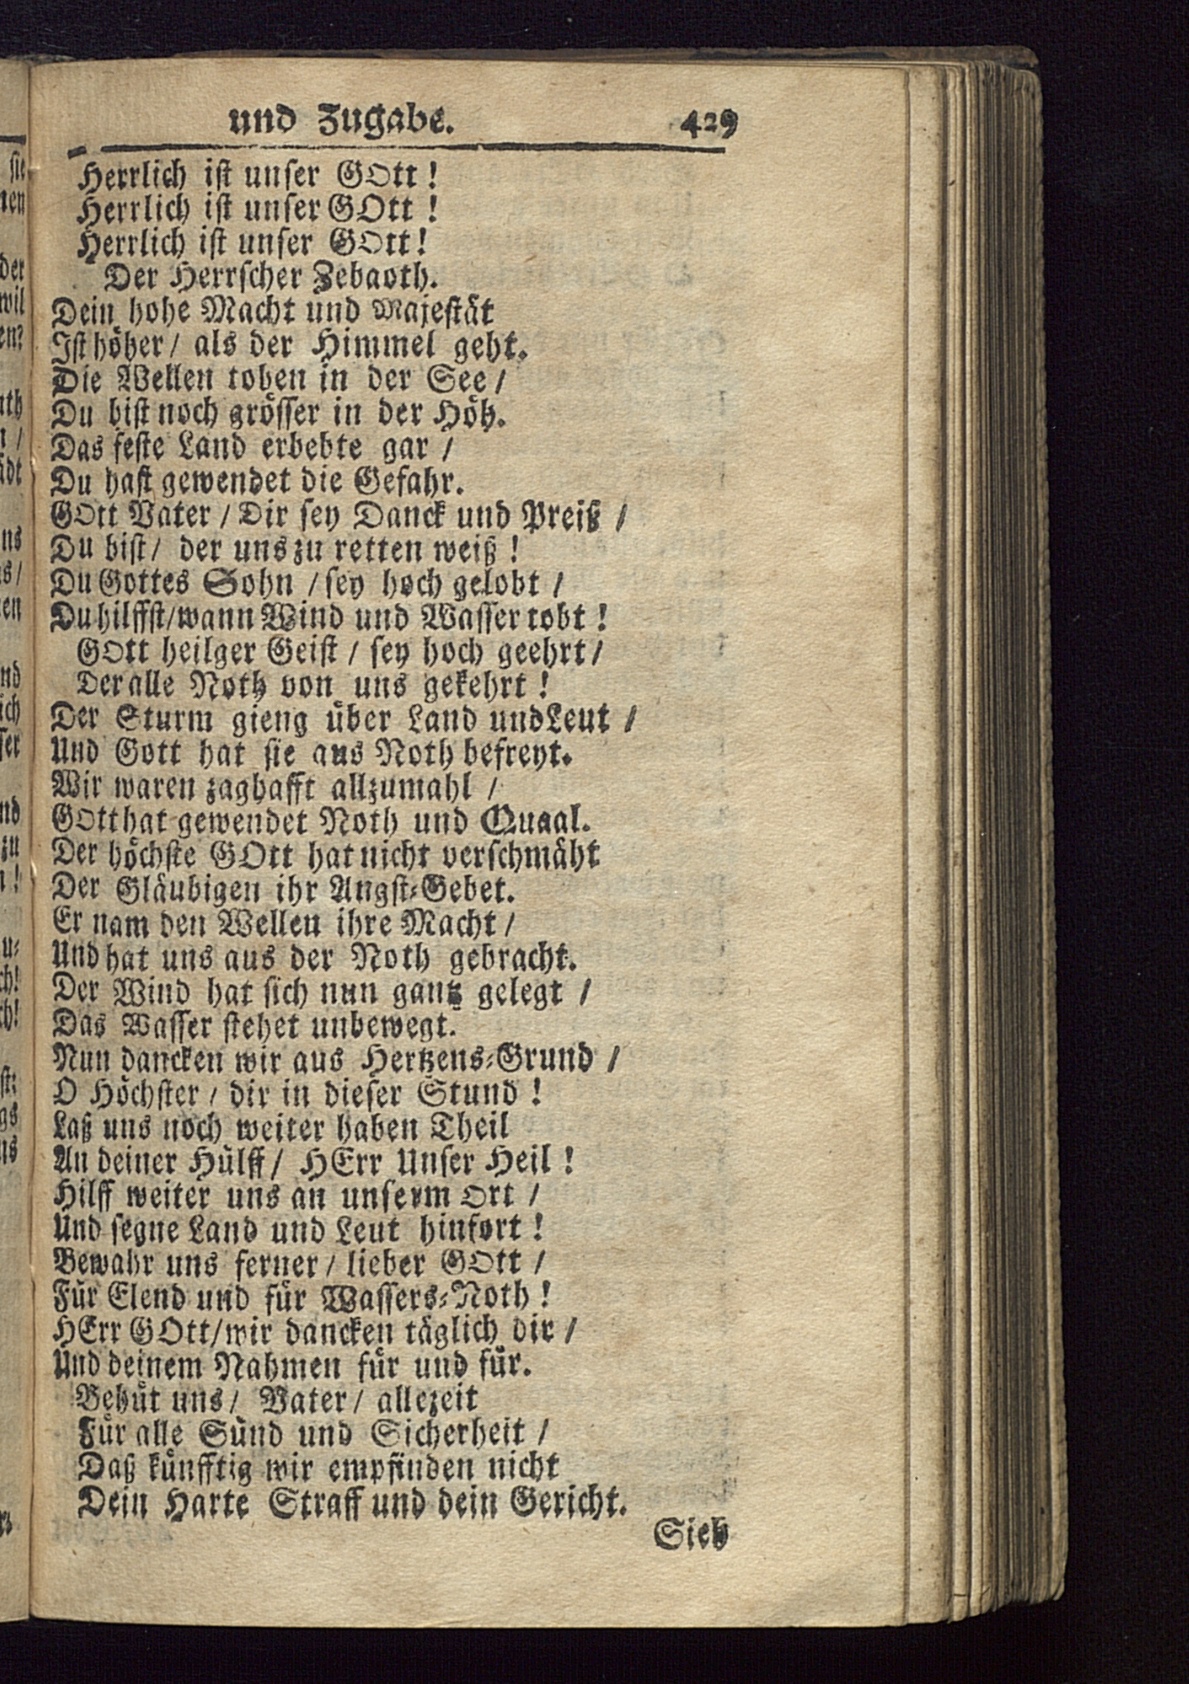 und Zugabe. 429
Herrlich ist unser GOtt!
Herrlich ist unser GOtt!
Herrlich ist unser GOtt!
Der Herrscher Zebaoth.
Dein hohe Macht und Majestät
Ist höher / als der Himmel geht.
Die Wellen toben in der See /
Du bist noch grösser in der Höh.
Das feste Land erbebte gar /
Du hast gewendet die Gefahr.
GOtt Vater / Dir sey Danck und Preiß /
Du bist / der uns zu retten weiß!
Du Gottes Sohn / sey hoch gelobt /
Du hilffst / wann Wind und Wasser tobt!
GOtt heilger Geist / sey hoch geehrt /
Der alle Noth von uns gekehrt!
Der Sturm gieng über Land und Leut /
Und Gott hat sie aus Noth befreyt.
Wir waren zaghafft allzumahl /
GOtt hat gewendet Noth und Quaal.
Der höchste GOtt hat nicht verschmäht
Der Gläubigen ihr Angst-Gebet.
Er nam den Wellen ihre Macht /
Und hat uns aus der Noth gebracht.
Der Wind hat sich nun gantz gelegt /
Das Wasser stehet unbewegt.
Nun dancken wir aus Hertzens-Grund /
O Höchster / dir in dieser Stund!
Laß uns noch weiter haben Theil
An deiner Hülff / HErr Unser Heil!
Hilff weiter uns an unserm Ort /
Und segne Land und Leut hinfort!
Bewahr uns ferner / lieber GOtt /
Für Elend und für Wassers-Noth!
HErr GOtt / wir dancken täglich dir /
Und deinem Nahmen für und für.
Behüt uns / Vater / allezeit
Für alle Sünd und Sicherheit /
Daß künfftig wir empfinden nicht
Dein Harte Straff und dein Gericht.
Sieh